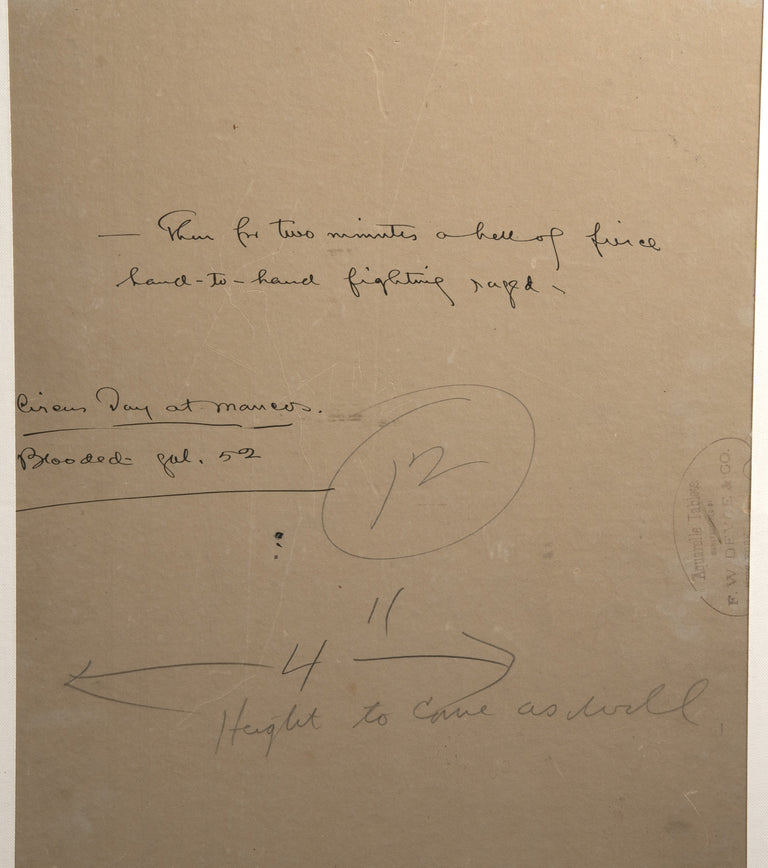 — Then for two minutes a hell of fierce
hand-to-hand fighting raged -
Circus Day at Mancos.
Blooded gal. 52
12
4"
Height to come as well
Aquarelle Tablets
F. W. DEVOE & CO.